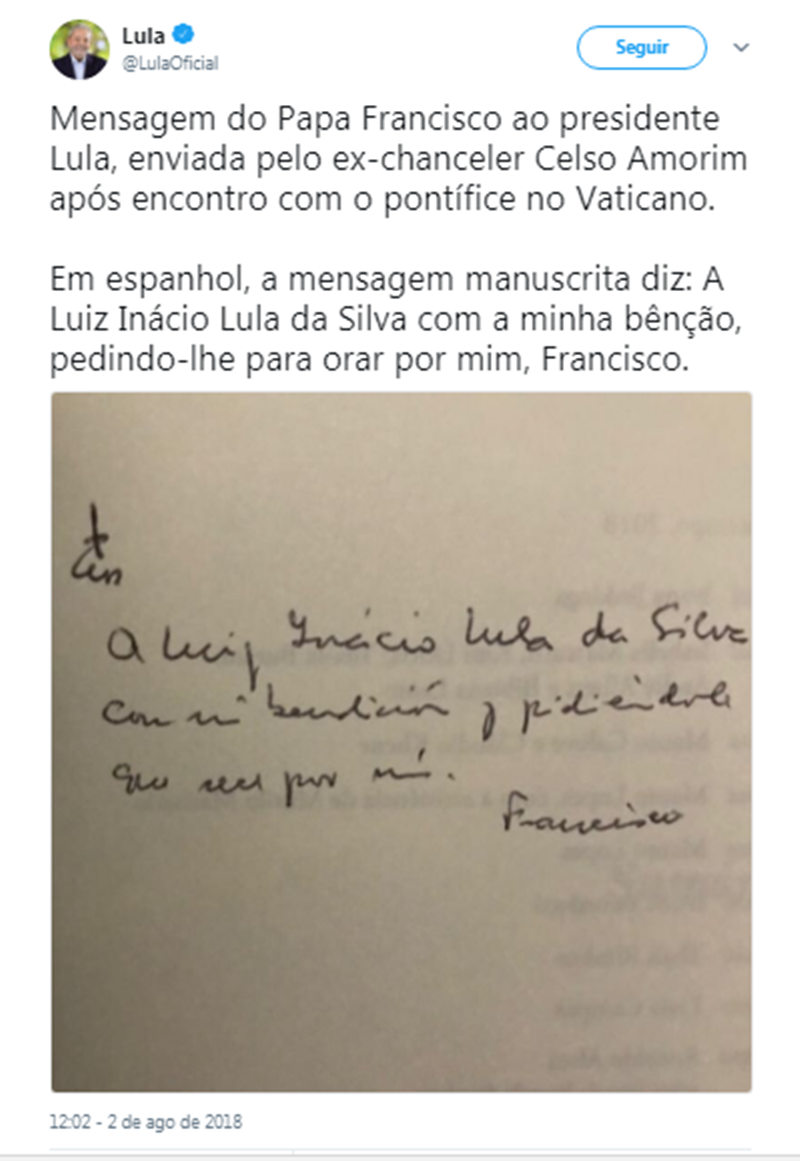 Lula
@LulaOficial
Seguir
Mensagem do Papa Francisco ao presidente
Lula, enviada pelo ex-chanceler Celso Amorim
após encontro com o pontífice no Vaticano.
Em espanhol, a mensagem manuscrita diz: A
Luiz Inácio Lula da Silva com a minha bênção,
pedindo-lhe para orar por mim, Francisco.
A Luiz Inácio Lula da Silva
con mi bendición y pidiéndole
que rece por mí.
Francisco
12:02 - 2 de ago de 2018